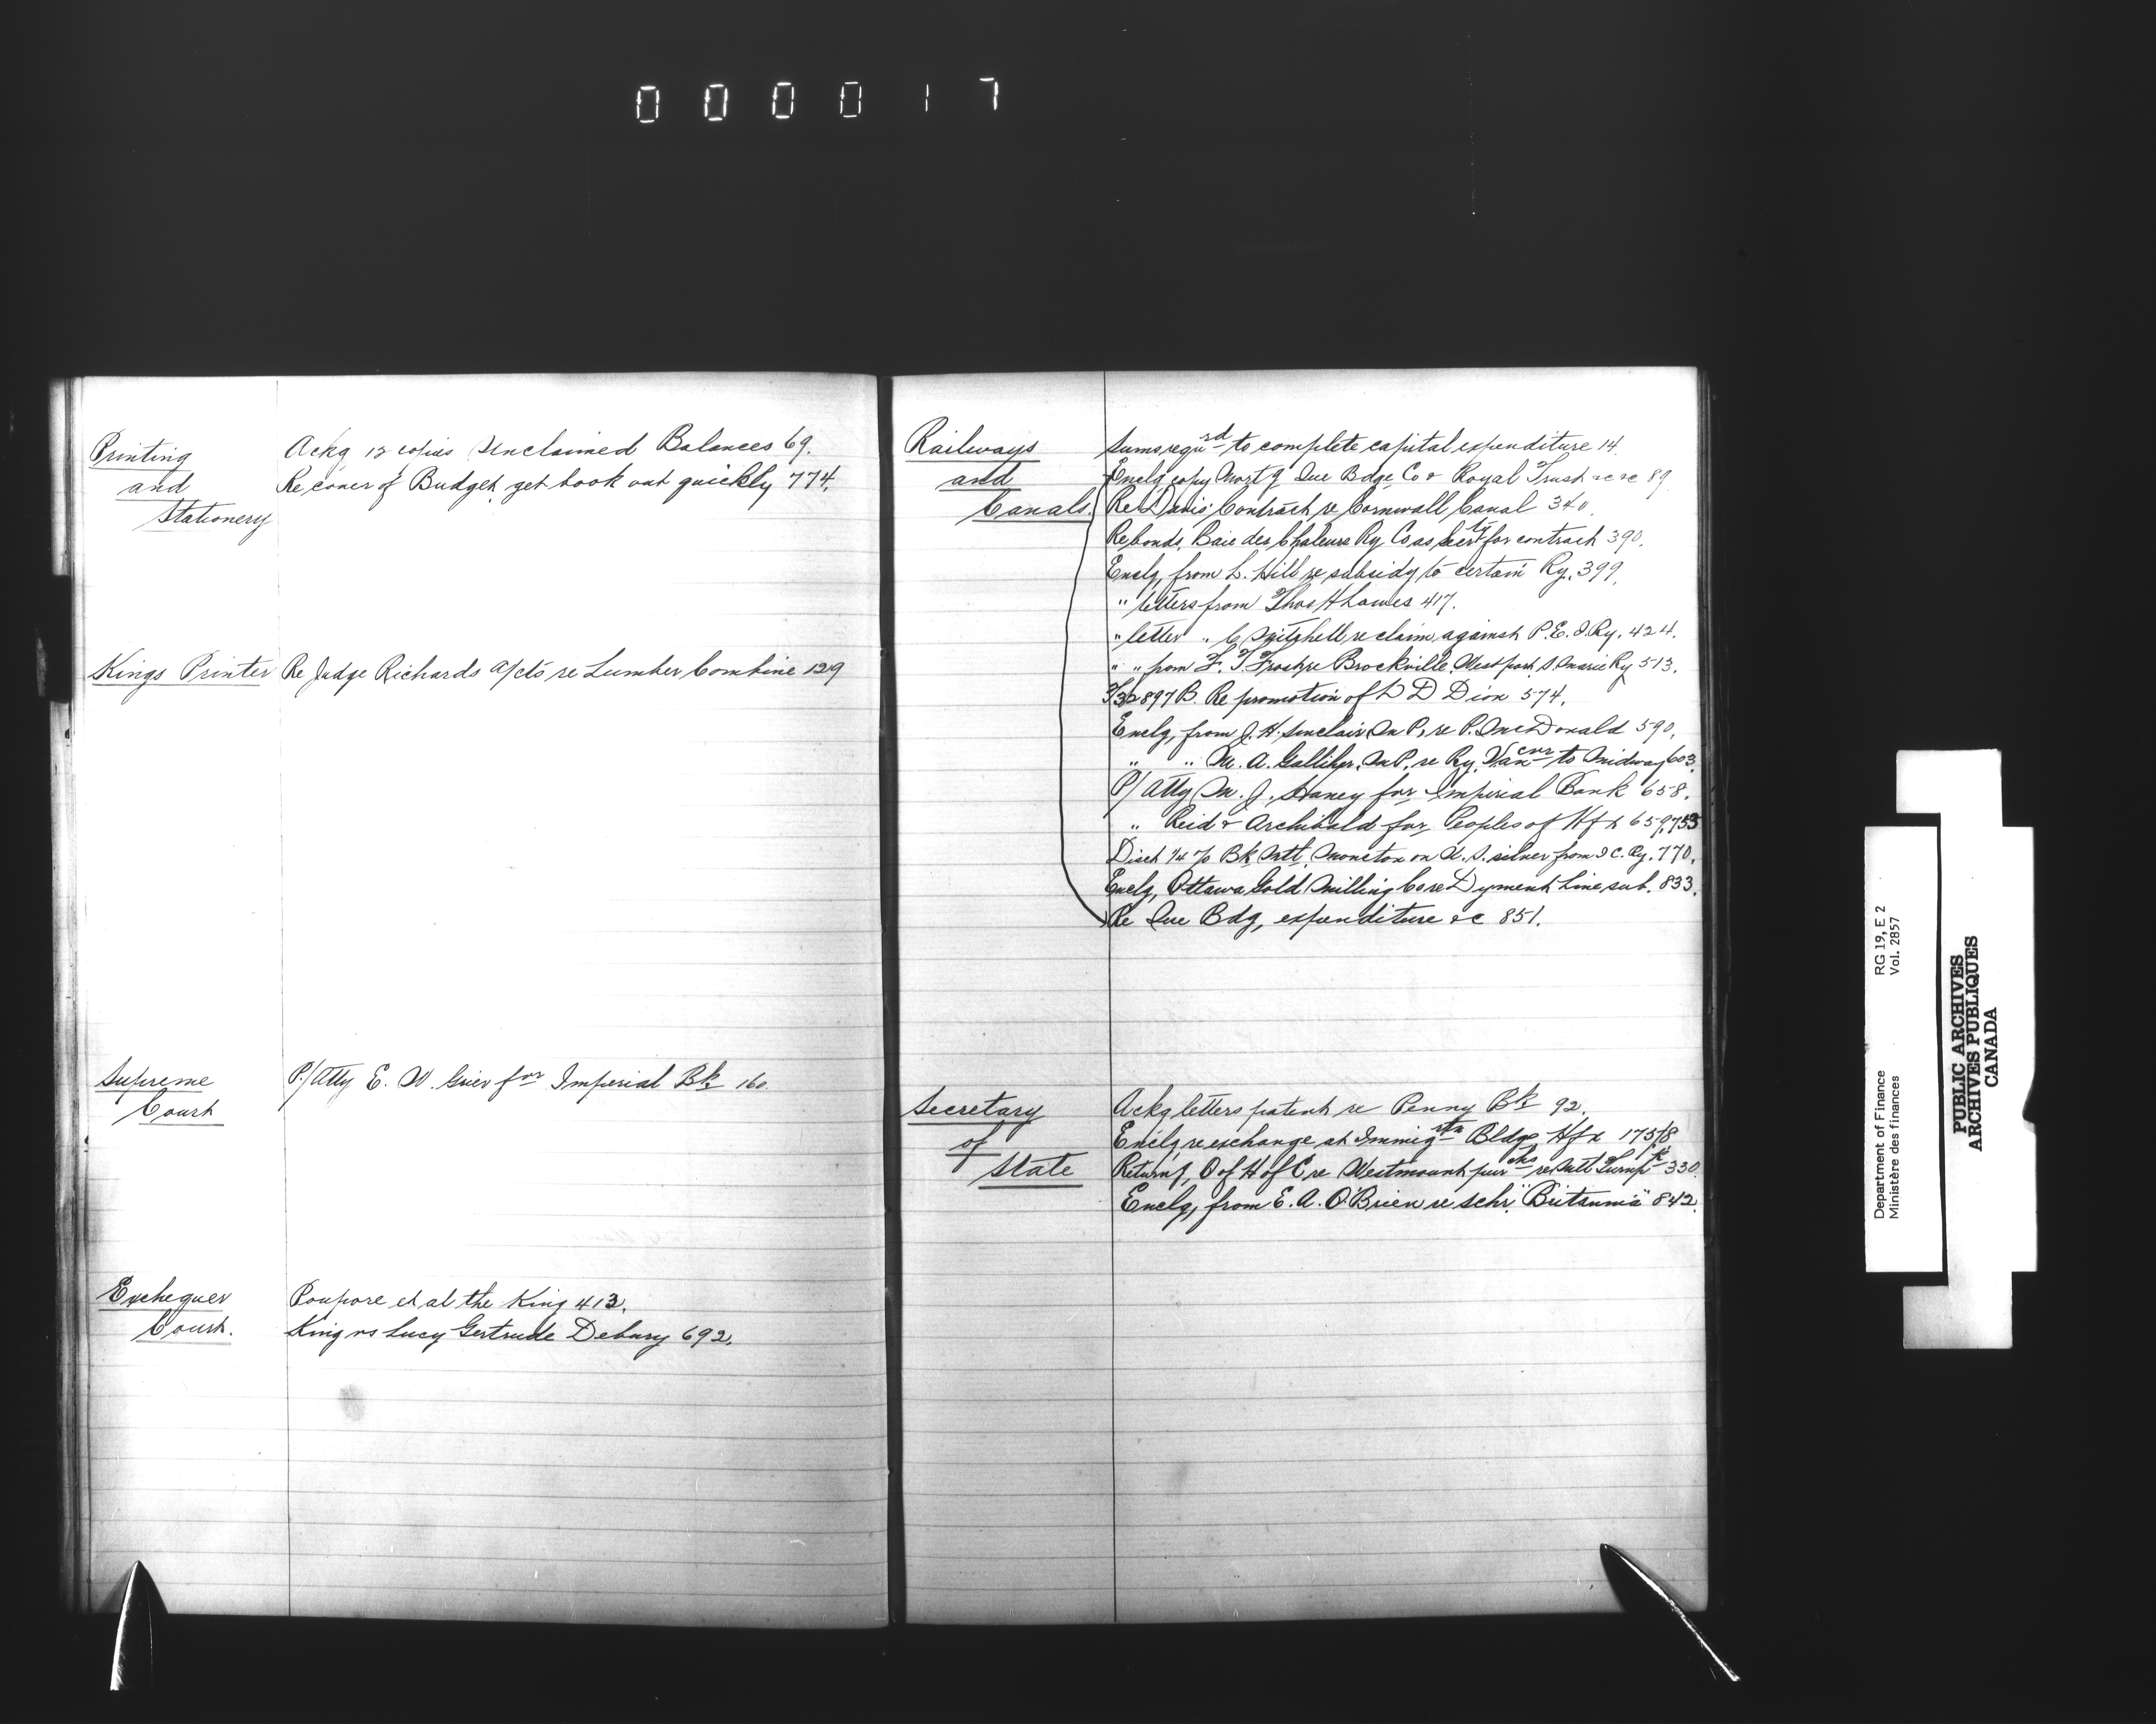 000017
Printing
and
Stationery
Ackg 12 copies Unclaimed Balances 69.
Re cover of Budget, get book out quickly 774.
Kings Printer
Re Judge Richards a/cts re Lumber Combine 129
Supreme
Court
P/Atty E. W. Grier for Imperial Bk 160.
Exchequer
Court.
Poupore et al the King 413.
King vs Lucy Gertrude Debury 692.
Railways
and
Canals.
Sums requrd to complete capital expenditure 14.
Enclg copy Mortg Que Bdge Co & Royal Trust re re 89.
Re Davis' Contract re Cornwall Canal 340.
Re bonds, Baie des Chaleurs Ry Co as secty for contract 390.
Enclg, from L. Hill re subsidy to certain Ry. 399.
" letters from Thos H 417.
" letter " C Mitchell re claim against P.E.I. Ry. 424.
" " from F. T. Frost re Brockville, Westport, S. Marie Ry 513.
897 B. Re promotion of L D Dion 574.
Enclg, from J. H. Sinclair, M P, re P. McDonald 590.
" " M. A. Galliher, M.P. re Ry. Vancvr to Midway 603.
P/Atty M. J. Haney for Imperial Bank 658.
" Reid & Archibald for Peoples of Hfx 659, 753
Disct 1/4 % Bk Mtl, Moncton on U.S. silver from I C. Ry. 770.
Enclg, Ottawa Gold Milling Co re Dyment Line sub. 833.
Re Que Bdg, expenditure &c 851.
Secretary
of
State
Ackg letters patent re Penny Bk 92.
Enclg re exchange at Immigrtn Bldg, Hfx 175/8
Return, O of H of C re Westmount purchs re Mtl Turnpk 330.
Enclg, from E. A. O'Brien re schr. "Britannia" 842.
RG 19, E 2
Vol. 2857
Department of Finance
Ministère des finances
PUBLIC ARCHIVES
ARCHIVES PUBLIQUES
CANADA